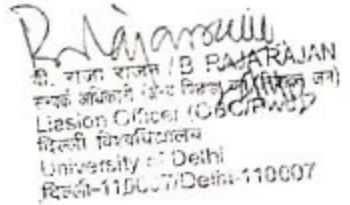 बी. राजा राजन / B RAJARAJAN
सम्पर्क अधिकारी (अन्य पिछड़ा जन)
Liasion Officer (OBC/PwD)
दिल्ली विश्वविद्यालय
University of Delhi
दिल्ली-110007/Delhi-110007